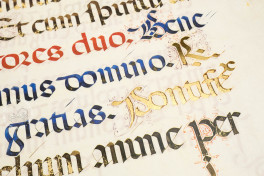 Et cum spiritu
ores duo. Bene
mus domino. R.
gratias. Pontifex
chum annue per